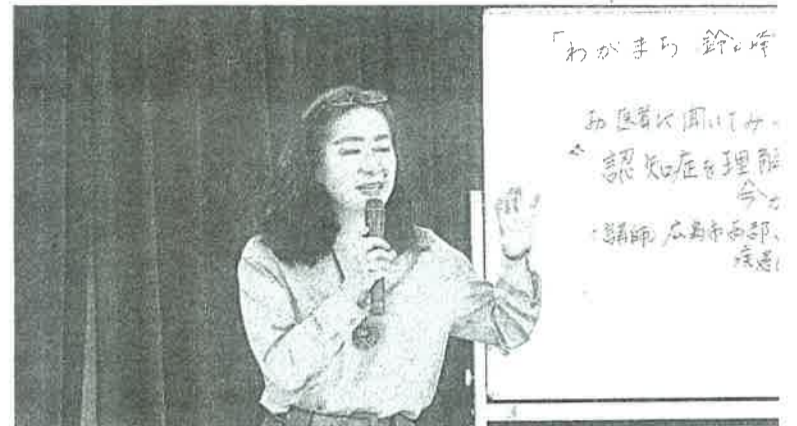 「わがまち 鈴が峰
お医者に聞いてみ
認知症を理解
今
・講師 広島市西部、
疾患